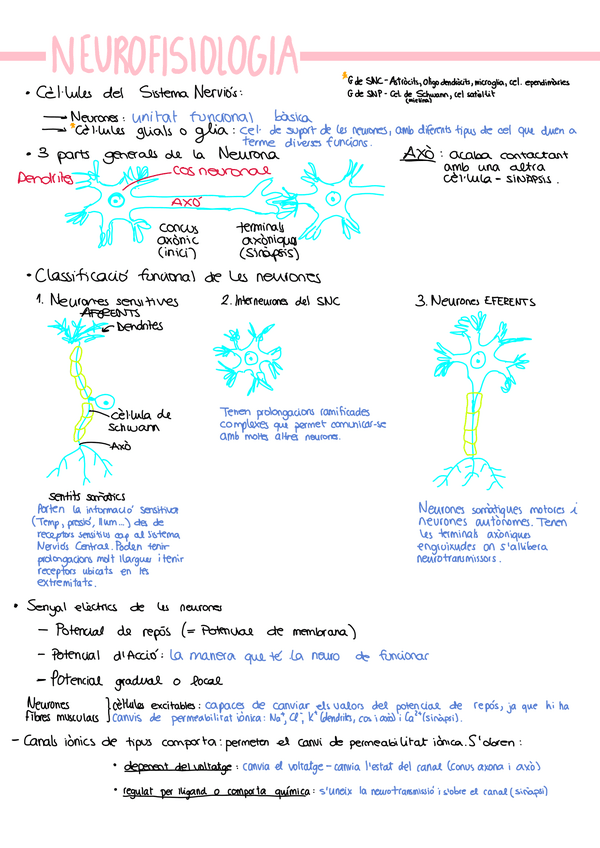 NEUROFISIOLOGIA
• Cèl·lules del Sistema Nerviós:
*G de SNC - Astròcits, Oligodendròcits, microglia, cel. ependimàries
G de SNP - Cel de Schwann, cel satèl·lit
(mielina)
→ Neurones: unitat funcional bàsica
→ *Cèl·lules glials o glia: cel· de suport de les neurones, amb diferents tipus de cel que duen a
terme diverses funcions.
• 3 parts generals de la Neurona
AXÒ: acaba contactant
amb una altra
cèl·lula - SINAPSIS.
Dendrites
cos neuronal
AXÓ
concus
axònic
(inici)
terminals
axòniques
(Sinapsis)
• Classificació funcional de les neurones
1. Neurones sensitives
AFERENTS
2. Interneurones del SNC
3. Neurones EFERENTS
Dendrites
cèl·lula de
Schwann
Axò
Tenen prolongacions ramificades
complexes que permet comunicar-se
amb moltes altres neurones.
sentits somàtics
Porten la informació sensitiva
(Temp, pressió, llum...) des de
receptors sensitius cap al Sistema
Nerviós Central. Poden tenir
prolongacions molt llargues i tenir
receptors ubicats en les
extremitats.
Neurones somàtiques motores i
neurones autònomes. Tenen
les terminals axòniques
engruixudes on s'allibera
neurotransmissors.
• Senyal elèctrics de les neurones
– Potencial de repós (= Potencial de membrana)
– Potencial d'Acció: la manera que té la neuro de funcionar
– Potencial gradual o local
Neurones
Fibres musculars
cèl·lules excitables: capaces de canviar els valors del potencial de repós, ja que hi ha
canvis de permeabilitat iònica: Na⁺, Cl⁻, K⁺ (dendrites, cos i axó) i Ca²⁺ (sinàpsi).
– Canals iònics de tipus comporta: permeten el canvi de permeabilitat iònica. S'obren:
• depenent del voltatge: canvia el voltatge – canvia l'estat del canal (conus axona i axò)
• regulat per lligand o comporta química: s'uneix la neurotransmissió i s'obre el canal (sinàpsi)